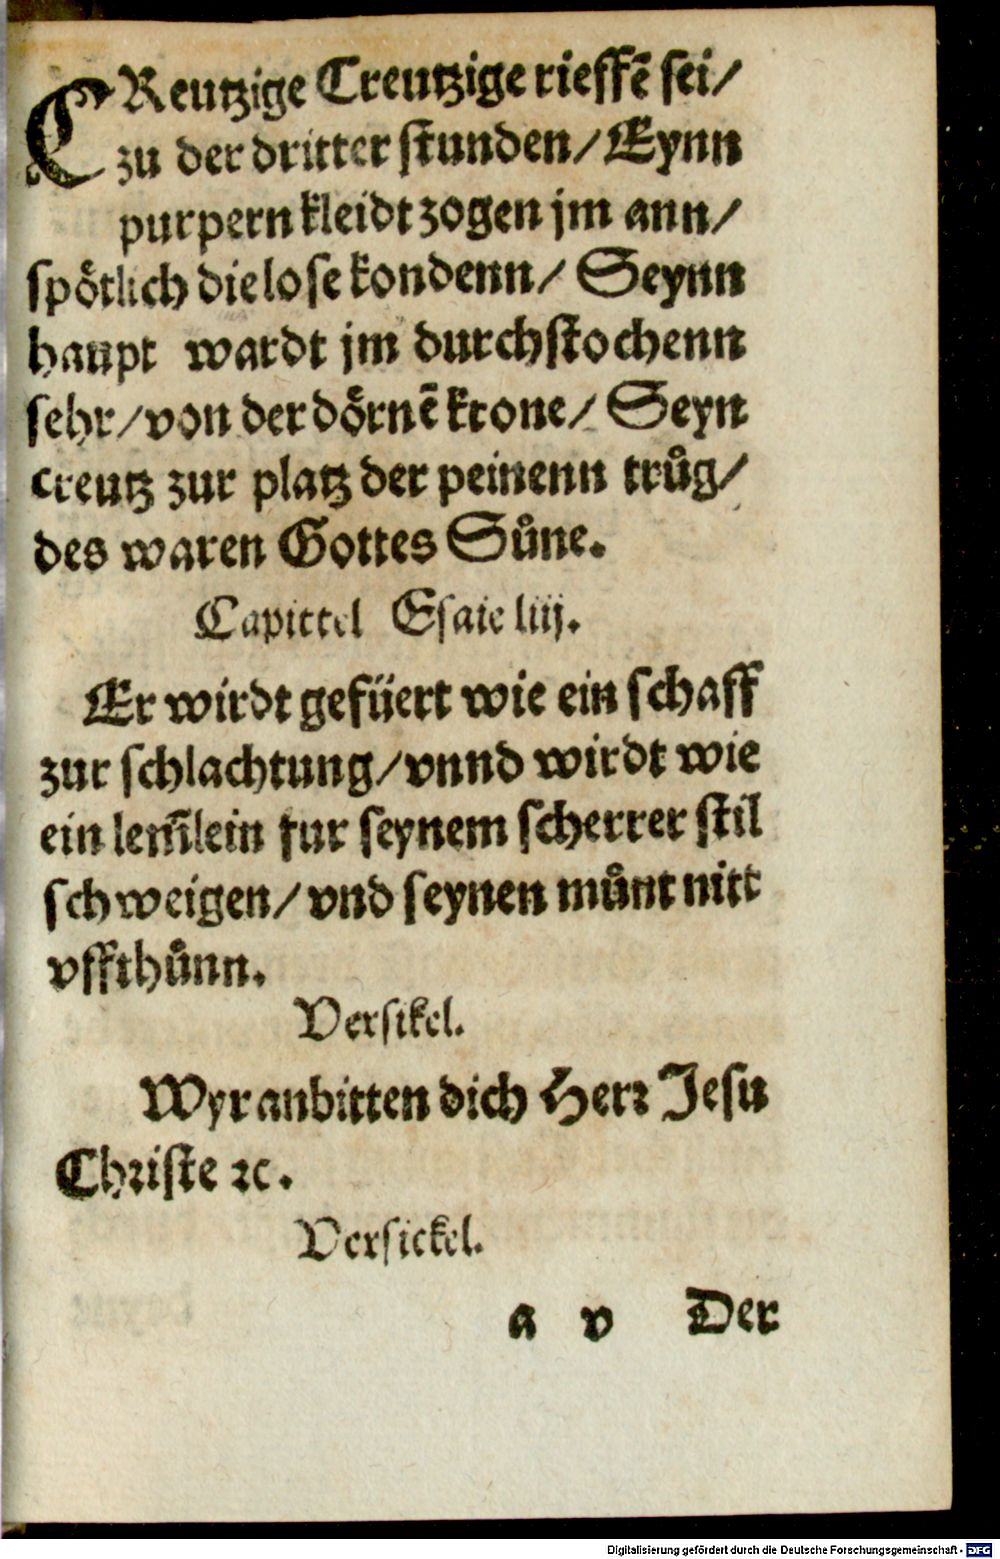 CReutzige Creutzige rieffẽ sei/
zu der dritter stunden/ Eynn
purpern kleidt zogen jm ann/
spoͤtlich die lose kondenn/ Seynn
haupt wardt jm durchstochenn
sehr/ von der doͤrnẽ krone/ Seyn
creutz zur platz der peinenn truͦg/
des waren Gottes Suͦne.
Capittel Esaie liij.
Er wirdt gefüert wie ein schaff
zur schlachtung/ vnnd wirdt wie
ein lem̃lein fur seynem scherrer stil
schweigen/ vnd seynen muͦnt nitt
vffthuͦnn.
Versikel.
Wyr anbitten dich Herr Jesu
Christe ꝛc.
Versickel.
a v Der
Digitalisierung gefördert durch die Deutsche Forschungsgemeinschaft - DFG